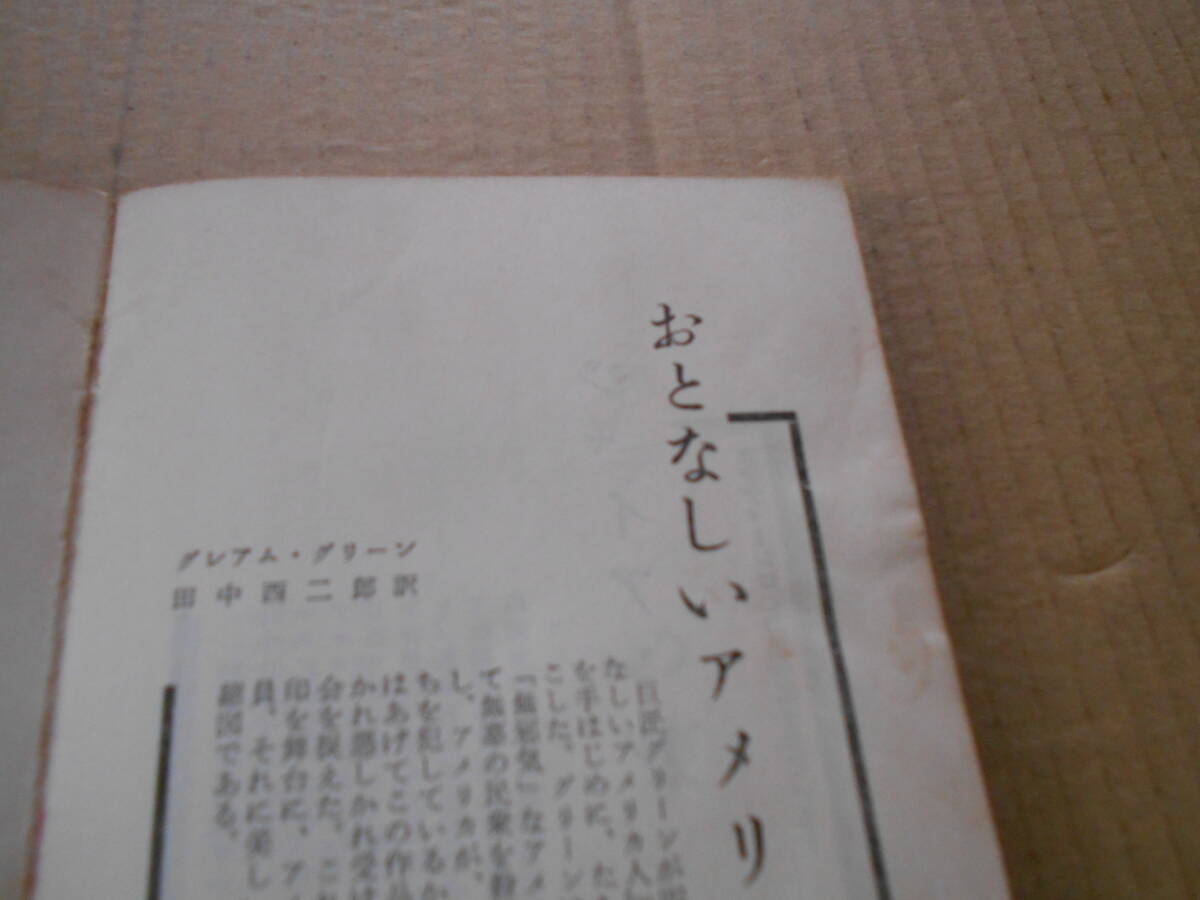 おとなしいアメリ
グレアム・グリーン
田中西二郎訳
巨匠グリーンが
なしいアメリカ人
を手はじめに、たた
こした。グリーン
「無邪気」なアメ
て無辜の民衆を
し、アメリカが、
ちを犯しているか
はあげてこの作品
かれ悪しかれ受け
会を捩えた。これ
印を舞台に、アメ
員、それに美し
縮図である。